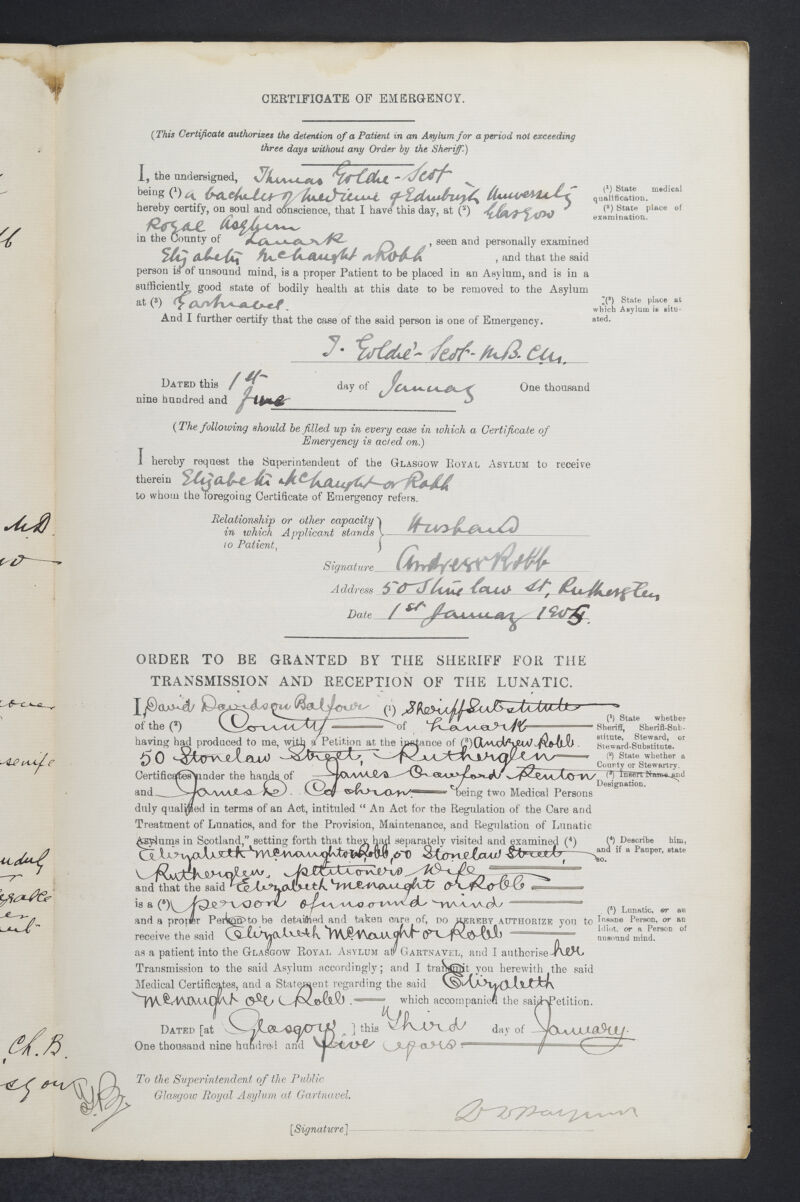 CERTIFICATE OF EMERGENCY.
(This Certificate authorizes the detention of a Patient in an Asylum for a period not exceeding
three days without any Order by the Sheriff.)
I, the undersigned, Thomas Goldie-Scot
being (¹) a bachelor of medicine of Edinburgh University
hereby certify, on soul and conscience, that I have this day, at (²) Glasgow
Royal Asylum
in the County of Lanark, seen and personally examined
Elizabeth McNaught or Robb, and that the said
person is of unsound mind, is a proper Patient to be placed in an Asylum, and is in a
sufficiently good state of bodily health at this date to be removed to the Asylum
at (³) Gartnavel.
And I further certify that the case of the said person is one of Emergency.
(¹) State medical
qualification.
(²) State place of
examination.
(³) State place at
which Asylum is situ-
ated.
T. Goldie-Scot-M.B. C.M.
DATED this 1st day of January One thousand
nine hundred and five
(The following should be filled up in every case in which a Certificate of
Emergency is acted on.)
I hereby request the Superintendent of the GLASGOW ROYAL ASYLUM to receive
therein Elizabeth McNaught or Robb
to whom the foregoing Certificate of Emergency refers.
Relationship or other capacity
in which Applicant stands
to Patient,
Husband
Signature Andrew Robb
Address 50 Stonelaw St, Rutherglen
Date 1st January 1905.
ORDER TO BE GRANTED BY THE SHERIFF FOR THE
TRANSMISSION AND RECEPTION OF THE LUNATIC.
I, David Davidson Balfour (¹) Sheriff Substitute
of the (²) County of Lanark
having had produced to me, with a Petition at the instance of (³) Andrew Robb.
50 Stonelaw Street, Rutherglen
Certificates under the hands of James Crawford Renton
and James L. Cochran being two Medical Persons
duly qualified in terms of an Act, intituled "An Act for the Regulation of the Care and
Treatment of Lunatics, and for the Provision, Maintenance, and Regulation of Lunatic
Asylums in Scotland," setting forth that they had separately visited and examined (⁴)
Elizabeth McNaught or Robb, 50 Stonelaw Street,
Rutherglen, petitioners wife
and that the said Elizabeth McNaught or Robb
is a (⁵) person of unsound mind
and a proper Person to be detained and taken care of, DO HEREBY AUTHORIZE YOU to
receive the said Elizabeth McNaught or Robb
as a patient into the GLASGOW ROYAL ASYLUM AT GARTNAVEL, and I authorise her
Transmission to the said Asylum accordingly; and I transmit you herewith the said
Medical Certificates, and a Statement regarding the said Elizabeth
McNaught or Robb. which accompanied the said Petition.
(¹) State whether
Sheriff, Sheriff-Sub-
stitute, Steward, or
Steward-Substitute.
(²) State whether a
County or Stewartry.
(³) Insert Name and
Designation.
(⁴) Describe him,
and if a Pauper, state
so.
(⁵) Lunatic, or an
Insane Person, or an
Idiot, or a Person of
unsound mind.
DATED [at Glasgow] this Third day of January.
One thousand nine hundred and five years
To the Superintendent of the Public
Glasgow Royal Asylum at Gartnavel.
[Signature] D D Balfour
M.D.
Ch. B.